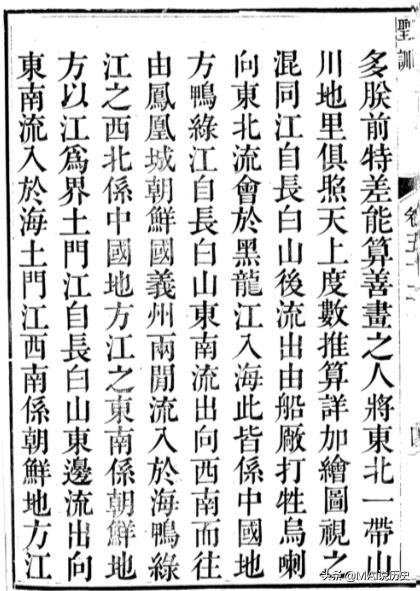 聖訓
多朕前特差能算善畫之人將東北一帶山
川地里俱照天上度數推算詳加繪圖視之
混同江自長白山後流出由船厰打牲烏喇
向東北流會於黑龍江入海此皆係中國地
方鴨綠江自長白山東南流出向西南而往
由鳳凰城朝鮮國義州兩閒流入於海鴨綠
江之西北係中國地方江之東南係朝鮮地
方以江爲界土門江自長白山東邊流出向
東南流入於海土門江西南係朝鮮地方江
头条@MAI说历史